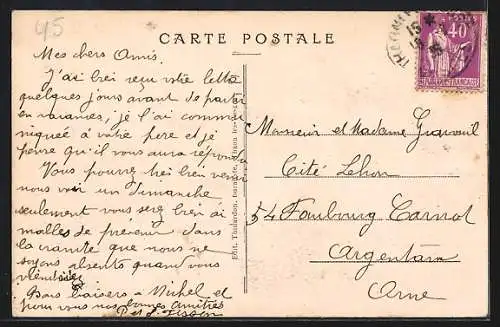 45
CARTE POSTALE
Mes chers Amis.
J'ai bien reçu votre lettre
quelques jours avant de partir
en vacances, je l'ai commu
niquée à votre pere et je
pense qu'il vous aura répondu
Vous pouvez bien venir
nous voir un Dimanche
seulement vous serez bien ai
malles de prevenir dans
la crainte que nous ne
soyons absents quand vous
viendriez
Bons baisers à Michel et
pour vous nos bonnes amitiés
P et J. Tisson
Monsieur et Madame
Cité Lehon
54 Faubourg Carnot
Argentan
Orne
40
POSTES
REPUBLIQUE FRANÇAISE
15